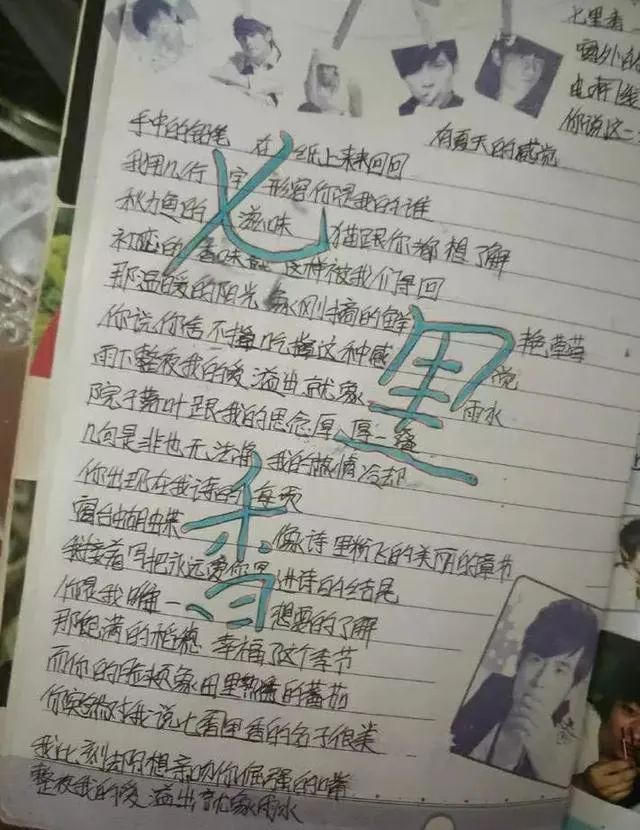 七里香
窗外的
电杆上
你说这一
手中的铅笔 在纸上来来回回 有夏天的感觉
我用几行字 形容你是我的谁
秋刀鱼的 滋味 猫跟你都想了解
初恋的香味就这样被我们寻回
那温暖的阳光 象刚摘的鲜艳草莓
你说你舍不得吃掉这种感觉
雨下整夜我的爱溢出就象雨水
院子落叶跟我的思念厚厚一叠
几句是非也无法将我的热情冷却
你出现在我诗的每页
七里香
窗台蝴蝶 像诗里纷飞的美丽的章节
我接着写把永远爱你写进诗的结尾
你是我唯一想要的了解
那饱满的稻穗 幸福了这个季节
而你的脸颊象田里熟透的蕃茄
你突然对我说七里香的名子很美
我此刻却只想亲吻你倔强的嘴
整夜我的爱溢出就象雨水